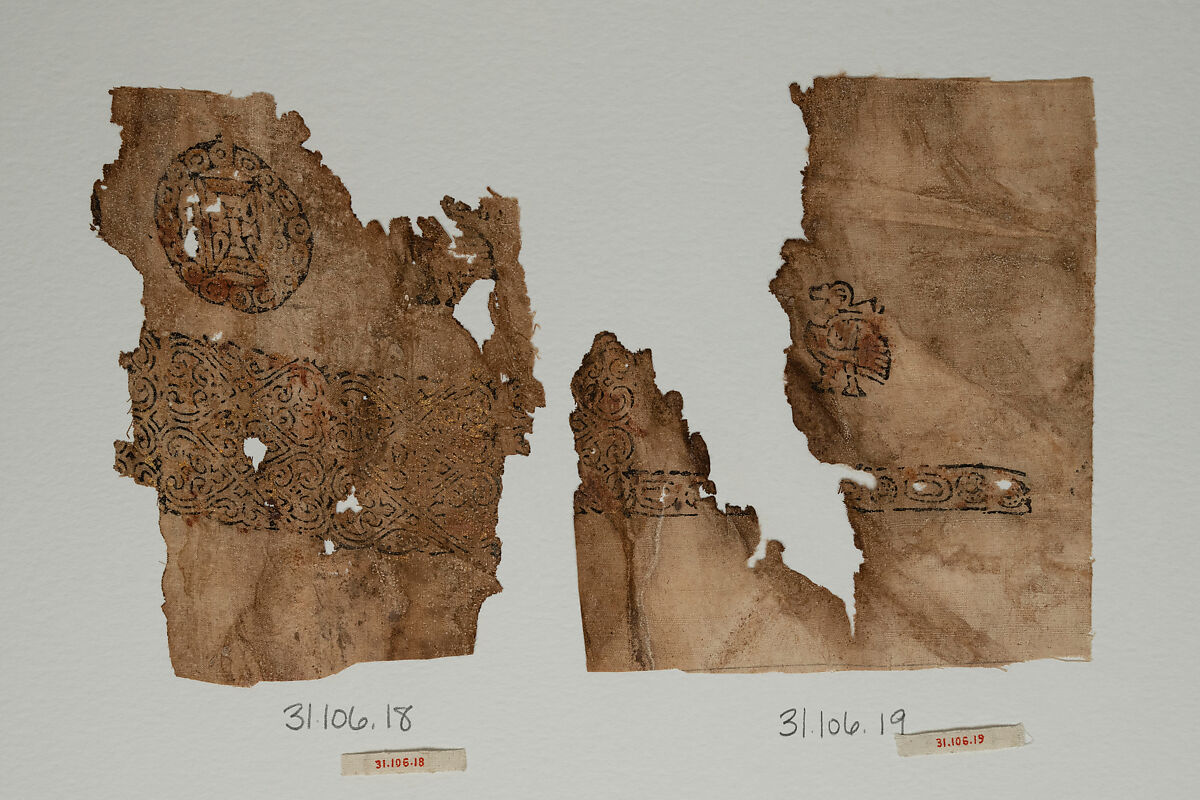 31.106.18
31.106.19
31.106.18
31.106.19